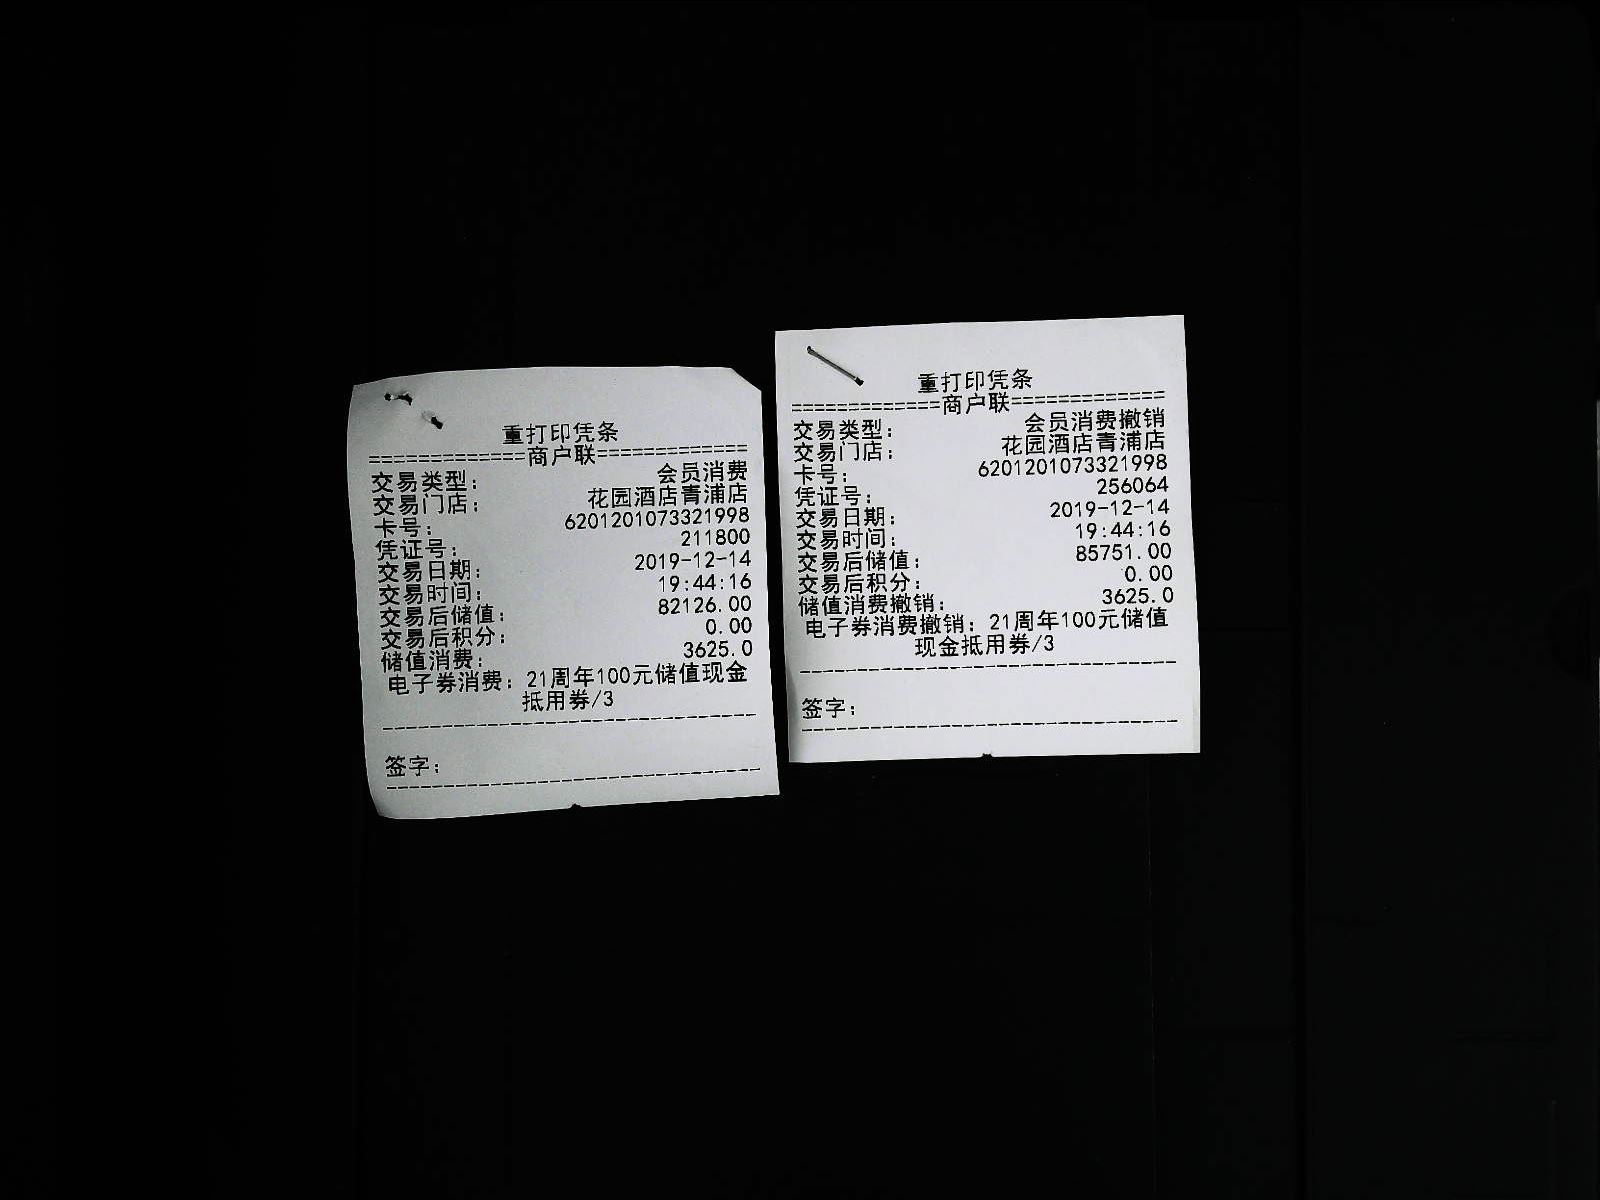 重打印凭条
=============商户联=============
交易类型： 会员消费
交易门店： 花园酒店青浦店
卡号： 6201201073321998
凭证号： 211800
交易日期： 2019-12-14
交易时间： 19:44:16
交易后储值： 82126.00
交易后积分： 0.00
储值消费： 3625.0
电子券消费：21周年100元储值现金
抵用券/3
--------------------------------
签字：
--------------------------------
重打印凭条
=============商户联=============
交易类型： 会员消费撤销
交易门店： 花园酒店青浦店
卡号： 6201201073321998
凭证号： 256064
交易日期： 2019-12-14
交易时间： 19:44:16
交易后储值： 85751.00
交易后积分： 0.00
储值消费撤销： 3625.0
电子券消费撤销：21周年100元储值
现金抵用券/3
--------------------------------
签字：
--------------------------------